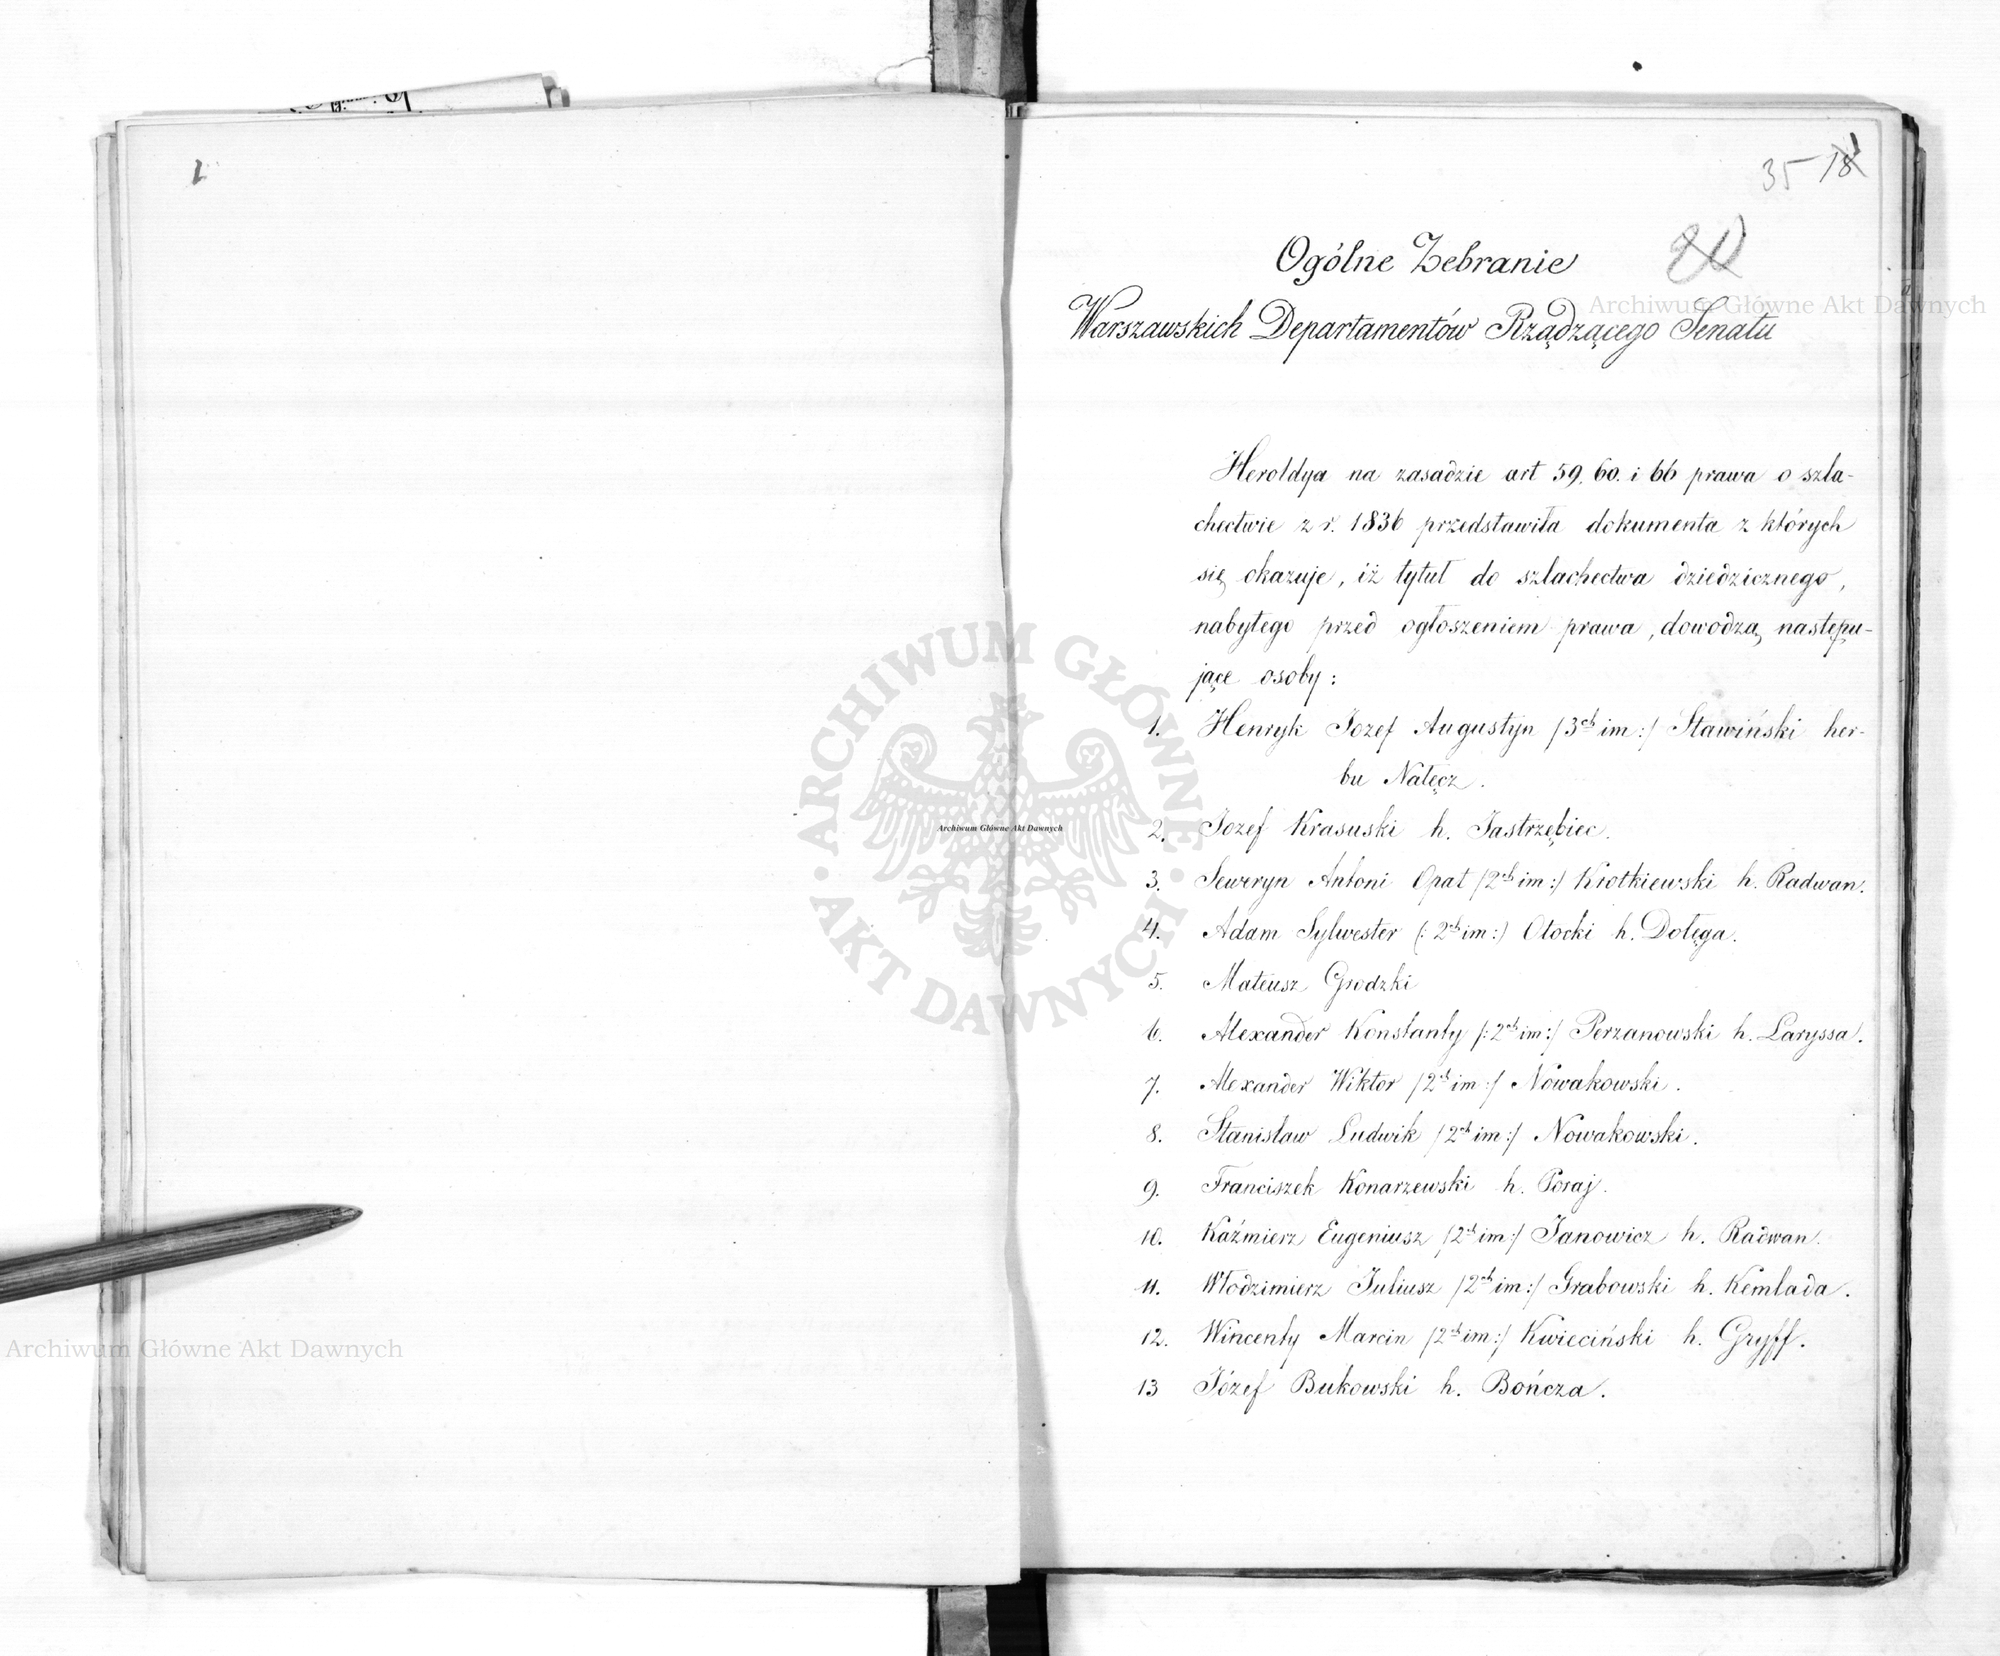 1
35 18
20
Ogólne Zebranie
Warszawskich Departamentów Rządzącego Senatu
Heroldya na zasadzie art 59. 60. i 66 prawa o szla-
chectwie z r. 1836 przedstawiła dokumenta z których
się okazuje, iż tytuł do szlachectwa dziedzicznego,
nabytego przed ogłoszeniem prawa, dowodzą następu-
jące osoby:
1. Henryk Jozef Augustyn /3ch im:/ Stawiński her-
bu Nałęcz.
2. Jozef Krasuski h. Jastrzębiec.
3. Seweryn Antoni Opat /2ch im:/ Krotkiewski h. Radwan.
4. Adam Sylwester (: 2ch im:) Otocki h. Dołęga.
5. Mateusz Grodzki
6. Alexander Konstanty /: 2ch im:/ Perzanowski h. Laryssa.
7. Alexander Wiktor /2ch im:/ Nowakowski.
8. Stanisław Ludwik /2ch im:/ Nowakowski.
9. Franciszek Konarzewski h. Poraj.
10. Kaźmierz Eugeniusz /2ch im:/ Janowicz h. Radwan.
11. Włodzimierz Juliusz /2ch im:/ Grabowski h. Kemlada.
12. Wincenty Marcin /2ch im:/ Kwieciński h. Gryff.
13 Józef Bukowski h. Bończa.
Archiwum Główne Akt Dawnych
ARCHIWUM GŁÓWNE
AKT DAWNYCH
Archiwum Główne Akt Dawnych
Archiwum Główne Akt Dawnych